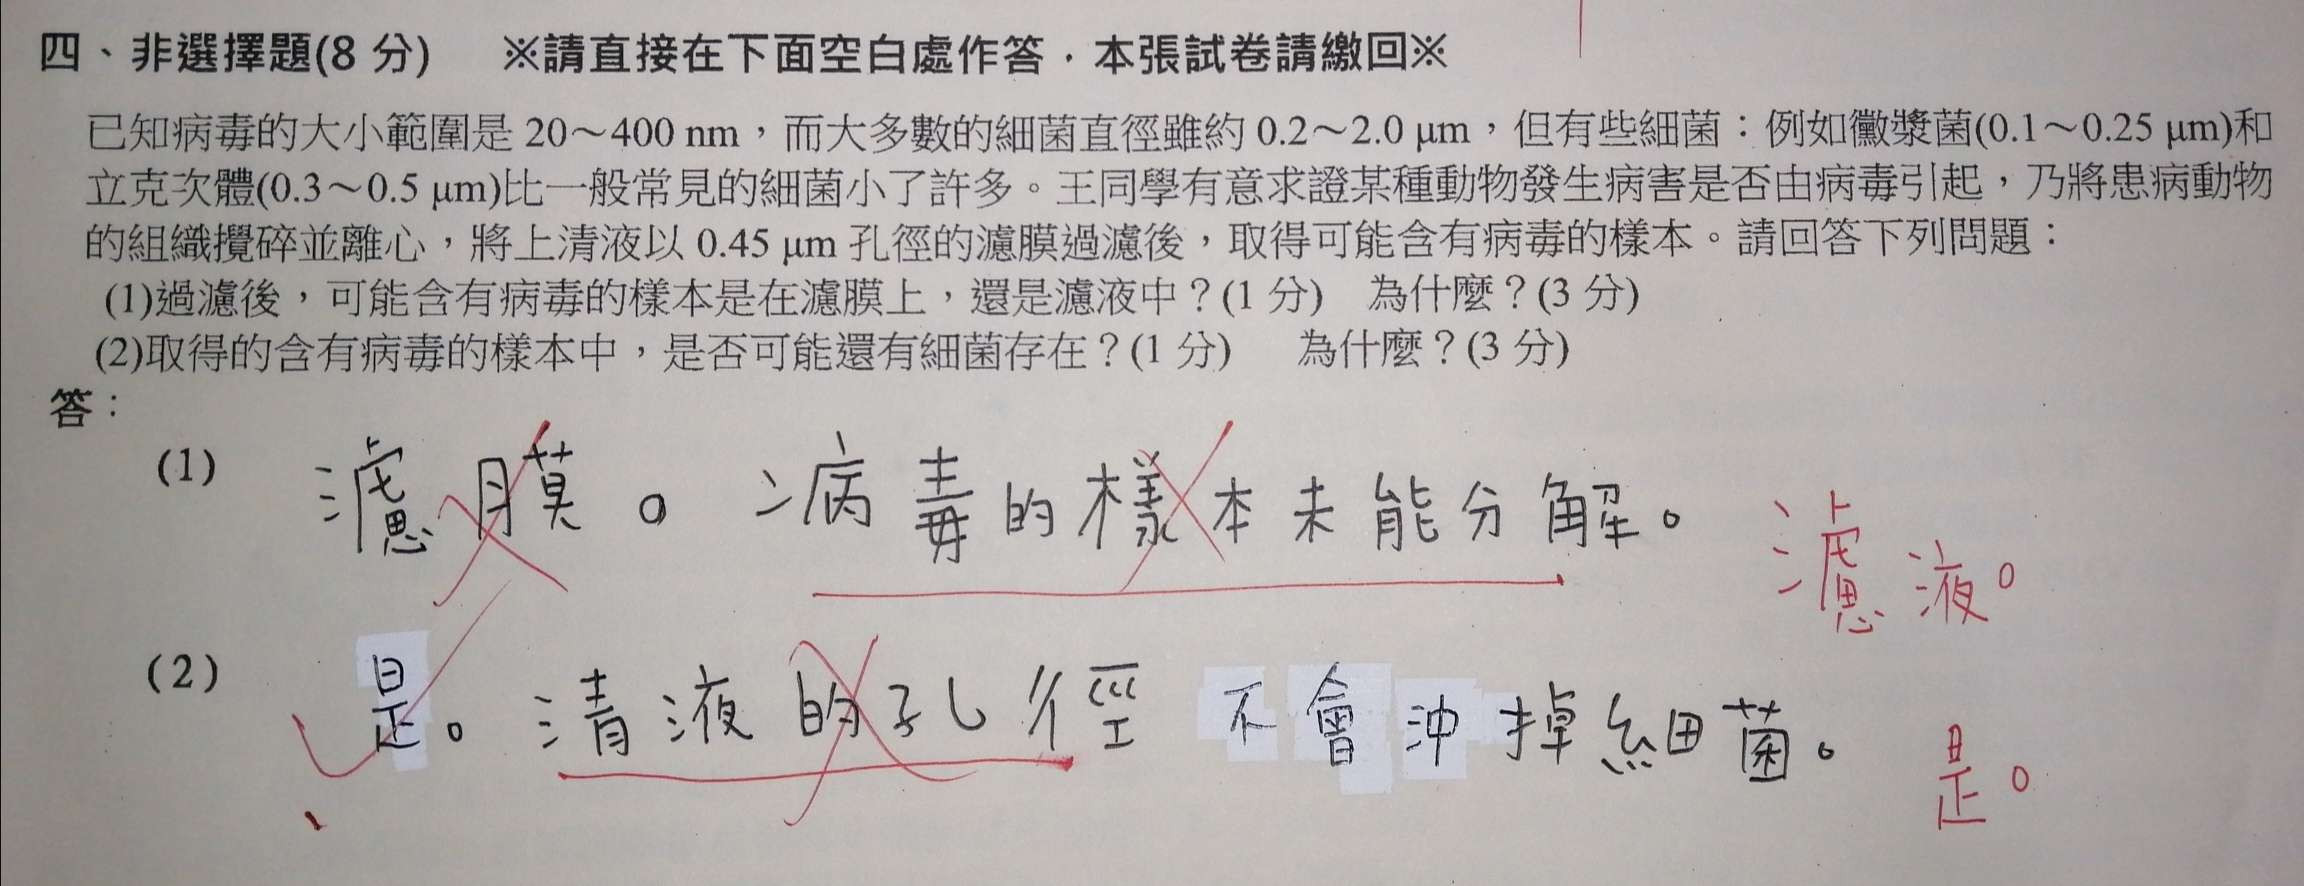 四、非選擇題(8 分)　※請直接在下面空白處作答，本張試卷請繳回※
已知病毒的大小範圍是 20～400 nm，而大多數的細菌直徑雖約 0.2～2.0 μm，但有些細菌：例如黴漿菌(0.1～0.25 μm)和
立克次體(0.3～0.5 μm)比一般常見的細菌小了許多。王同學有意求證某種動物發生病害是否由病毒引起，乃將患病動物
的組織攪碎並離心，將上清液以 0.45 μm 孔徑的濾膜過濾後，取得可能含有病毒的樣本。請回答下列問題：
(1)過濾後，可能含有病毒的樣本是在濾膜上，還是濾液中？(1 分)　為什麼？(3 分)
(2)取得的含有病毒的樣本中，是否可能還有細菌存在？(1 分)　為什麼？(3 分)
答：
(1) 濾膜。病毒的樣本未能分解。 濾液。
(2) 是。清液的孔徑不會沖掉細菌。 是。